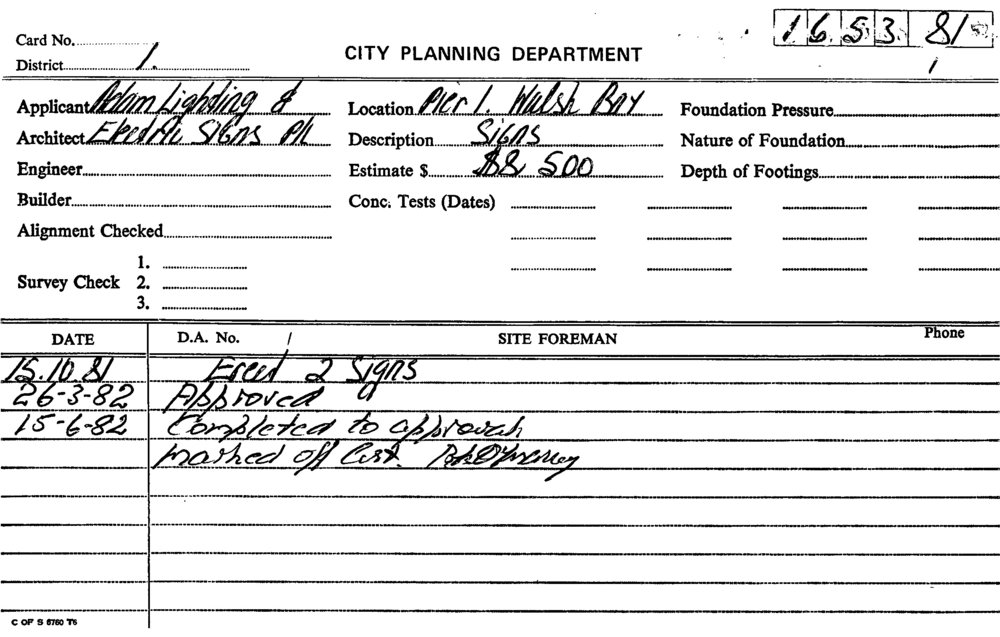 16 53 81
Card No.
District 1.
CITY PLANNING DEPARTMENT
1
Applicant Adam Lighting &
Location Pier 1. Walsh Bay
Foundation Pressure
Architect Electric Signs P/L
Description Signs
Nature of Foundation
Engineer
Estimate $ $8 500
Depth of Footings
Builder
Conc. Tests (Dates)
Alignment Checked
1.
Survey Check 2.
3.
DATE D.A. No. / SITE FOREMAN Phone
15.10.81 Erect 2 Signs
26-3-82 Approved
15-6-82 Completed to approval
marked off List.
C OF S 6760 T6